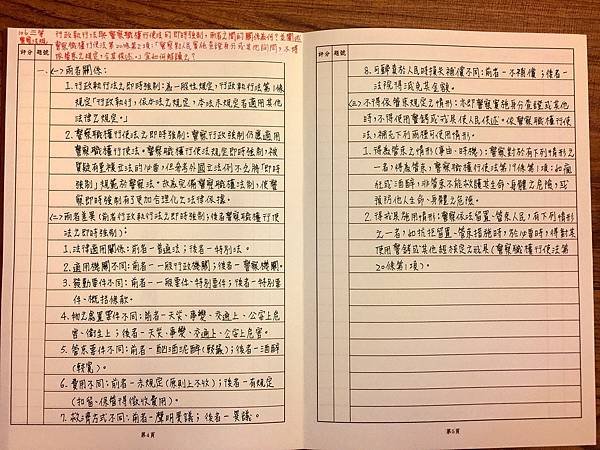 106三等
警察法規
行政執行法與警察職權行使法的即時強制，兩者之間的關係為何？並闡述
警察職權行使法第20條第2項：「警察對人民實施查證身分或其他詢問，不得
依管束之規定，令其供述。」宜如何解讀之？
評分 題號
評分 題號
一、(一)兩者關係：
1. 行政執行法之即時強制：為一般性規定，行政執行法第1條
規定「行政執行，依本法之規定，本法未規定者適用其他
法律之規定。」
2. 警察職權行使法之即時強制：警察行政強制仍應適用
警察職權行使法。警察職權行使法規定即時強制，被
質疑有重複立法的必要，但參考外國立法例不乏將「即時
強制」規範於警察法。故為完備警察職權法制，使警
察即時強制有了更加合理化之法律保障。
(二)兩者差異(前者行政執行法之即時強制；後者警察職權行使
法之即時強制)：
1. 法律適用關係：前者－普通法；後者－特別法。
2. 適用機關不同：前者－一般行政機關；後者－警察機關。
3. 發動要件不同：前者－一般要件、特別要件；後者－特別要
件、概括條款。
4. 物之處置要件不同：前者－天災、事變、交通上、公安上危
害、衛生上；後者－天災、事變、交通上、公安上危害。
5. 管束要件不同：前者－酗酒泥醉(較嚴)；後者－酒醉
(較寬)。
6. 費用不同：前者－未規定(原則上不收)；後者－有規定
(扣留、保管得徵收費用)。
7. 救濟方式不同：前者－聲明異議；後者－異議。
第4頁
8. 可歸責於人民時損失補償不同：前者－不補償；後者－
法院得減免其金額。
(三)不得依管束規定之情形：亦即警察實施身分查證或其他
時，不得使用警銬或戒具使人民供述。依警察職權行使
法，補充下列兩種可使用情形。
1. 得為管束之情形(事由、時機)：警察對於有下列情形之
一者，得為管束，警察職權行使法第19條第1項：如瘋
狂或酒醉，非管束不能救護其生命、身體之危險，或
預防他人生命、身體之危險。
2. 得戒具施用情形：警察依法留置、管束人民，有下列情形
之一者，如抗拒留置、管束措施時，於必要時，得對其
使用警銬或其他經核定之戒具(警察職權行使法第
20條第1項)。
第5頁